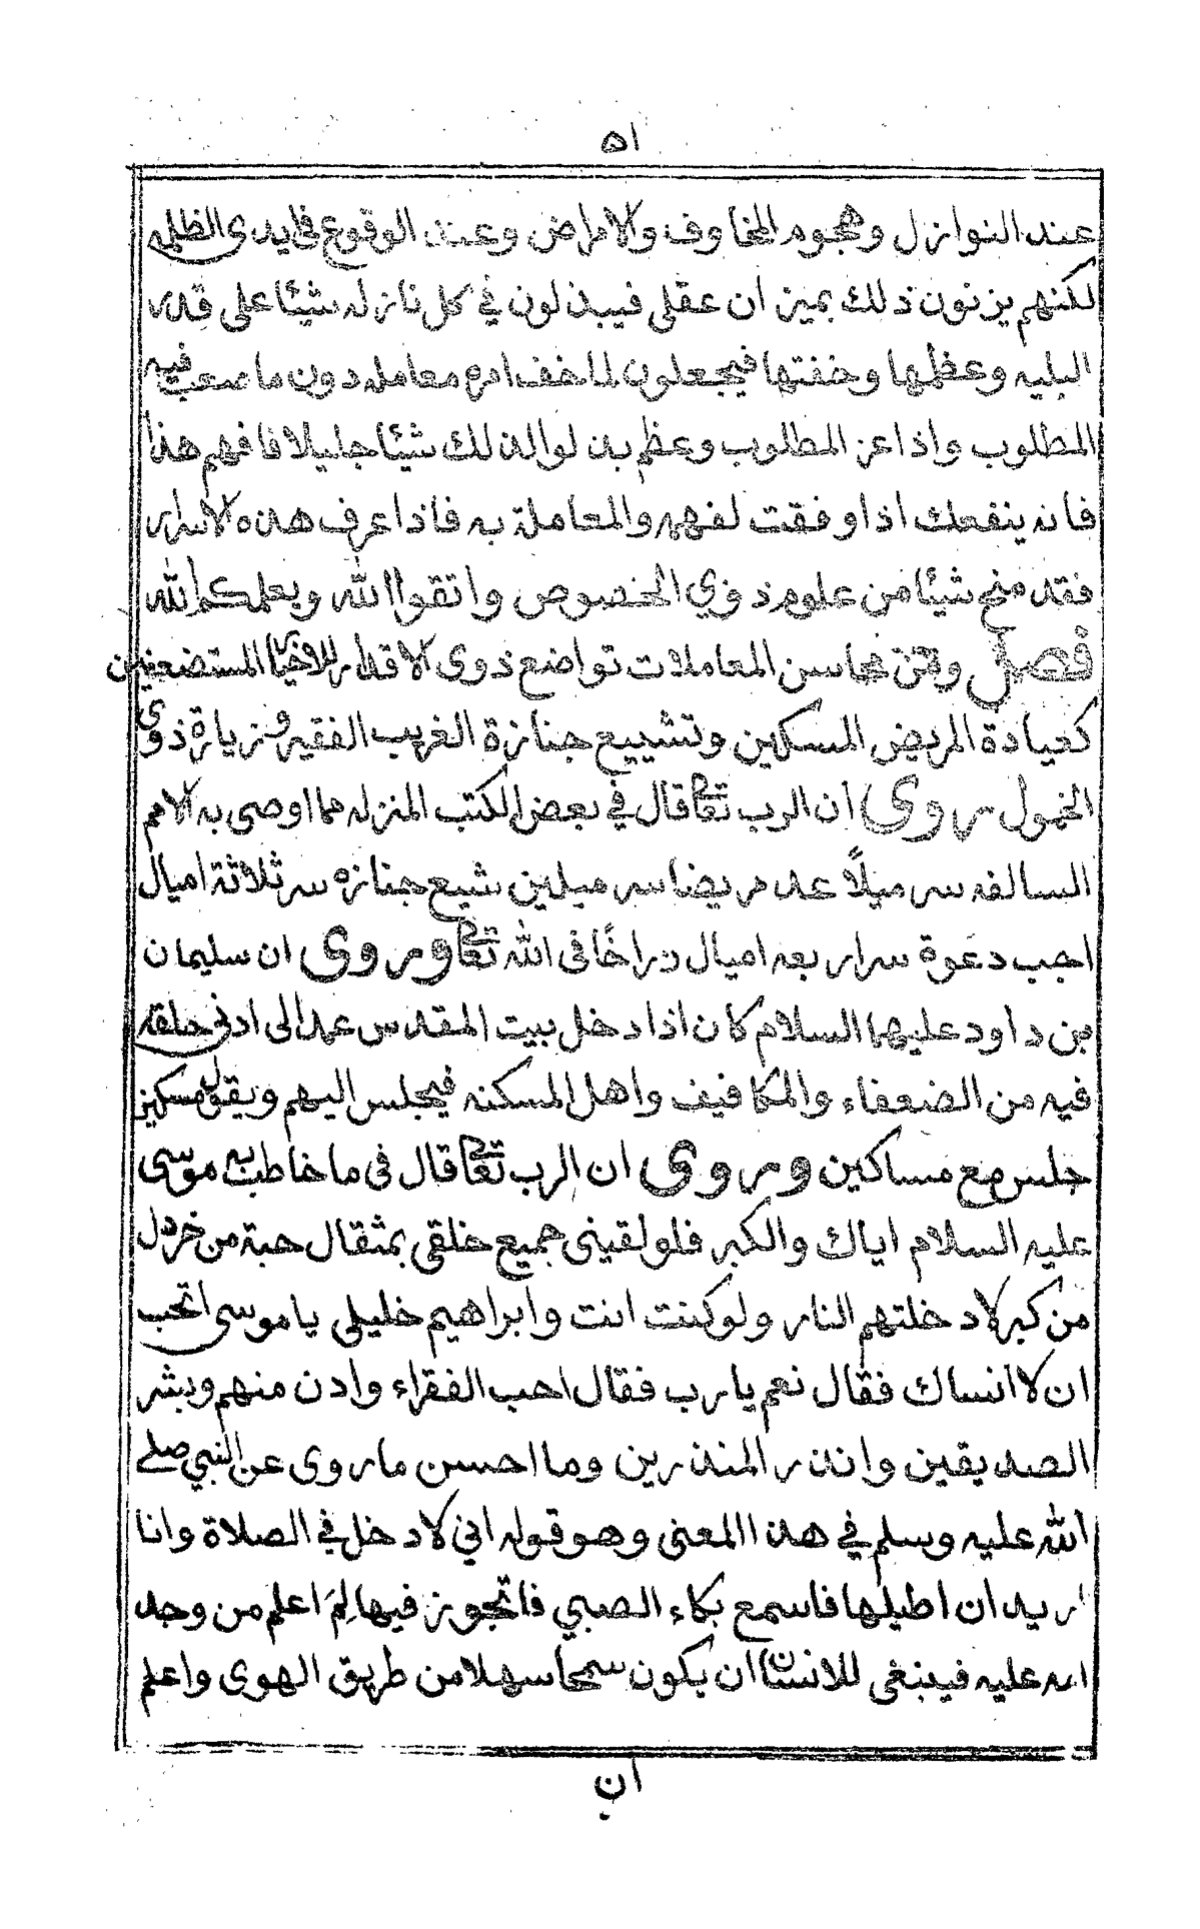 ٥١
عند النوازل وهجوم المخاوف والامراض وعند الوقوع فى ايدى الظلمه
لكنهم يزنون ذلك بميزان عقلى فيبذلون في كل نازله شيئا على قدر
البليه وعظمها وخفتها فيجعلون لما خف امره معامله دون ما صعب فيه
المطلوب واذا عز المطلوب وعظم بذلوا لذلك شيئا جليلا فافهم هذا
فانه ينفعك اذا وفقت لفهمه والمعاملة به فاذا عرف هذه الاسرار
فقد منح شيئا من علوم ذوي الخصوص واتقوا الله ويعلمكم الله
فصل ومن محاسن المعاملات تواضع ذوى الاقدار للاخيار المستضعفين
كعيادة المريض المسكين وتشييع جنازة الغريب الفقير وزيارة ذوى
الخمول روى ان الرب تعالى قال في بعض الكتب المنزله مما اوصى به الامم
السالفه سر ميلاً عد مريضا سر ميلين شيع جنازه سر ثلاثة اميال
اجب دعوة سر اربعه اميال زر اخًا فى الله تعالى وروى ان سليمان
بن داود عليهما السلام كان اذا دخل بيت المقدس عمد الى ادنى حلقه
فيه من الضعفاء والمكافيف واهل المسكنه فيجلس اليهم ويقول مسكين
جلس مع مساكين وروى ان الرب تعالى قال فى ما خاطب به موسى
عليه السلام اياك والكبر فلو لقينى جميع خلقى بمثقال حبة من خردل
من كبر لادخلتهم النار ولو كنت انت وابراهيم خليلى يا موسى اتحب
ان لا انساك فقال نعم يا رب فقال احب الفقراء وادن منهم وبشر
الصديقين وانذر المنذرين وما احسن ما روى عن النبي صلے
الله عليه وسلم في هذا المعنى وهو قوله اني لادخل في الصلاة وانا
اريد ان اطيلها فاسمع بكاء الصبي فاتجوز فيها لِمَ اعلم من وجد
امه عليه فينبغى للانسان ان يكون سمحا سهلا من طريق الهوى واعلم
ان